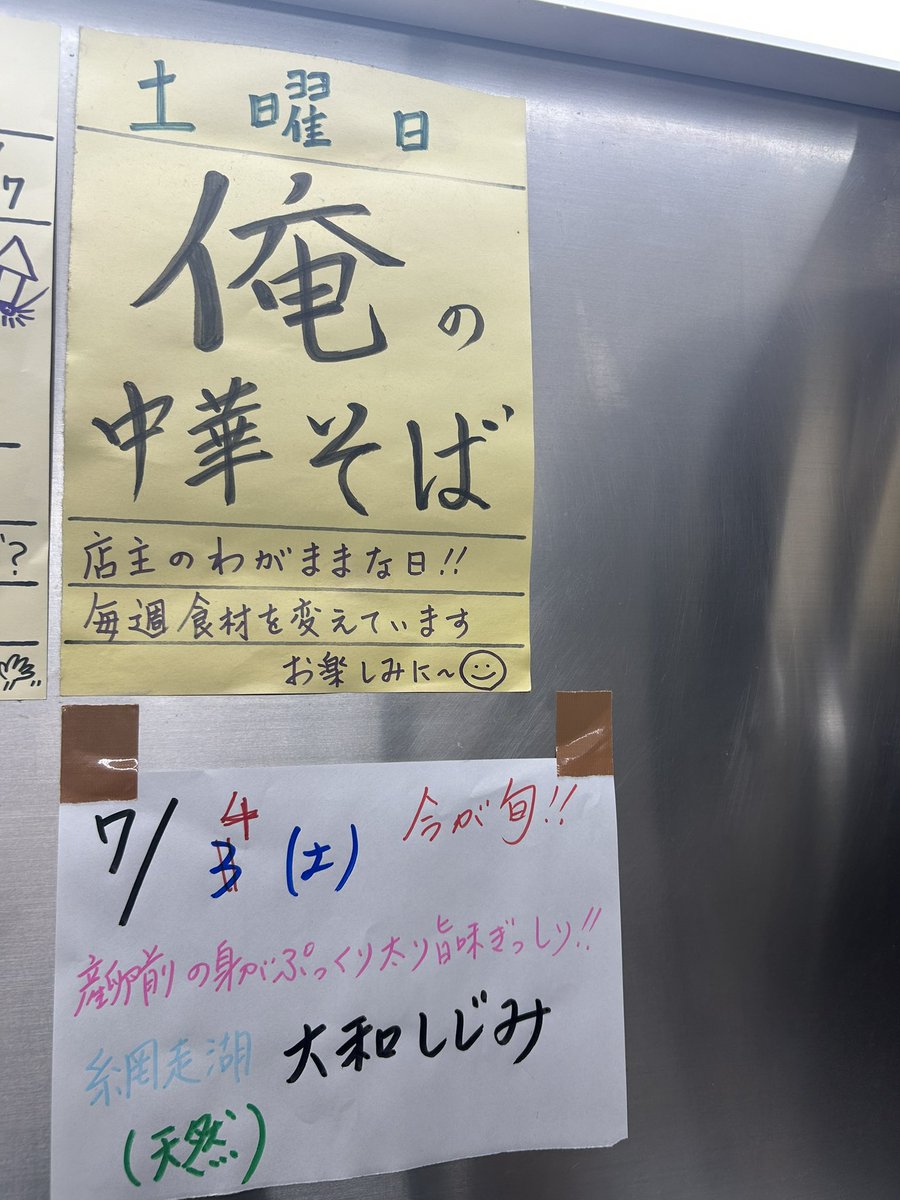 土曜日
俺の
中華そば
店主のわがままな日!!
毎週食材を変えています
お楽しみに〜
7
?
7/4(土) 今が旬!!
産卵前の身がぷっくり太り旨味ぎっしり!!
網走湖 大和しじみ
(天然)